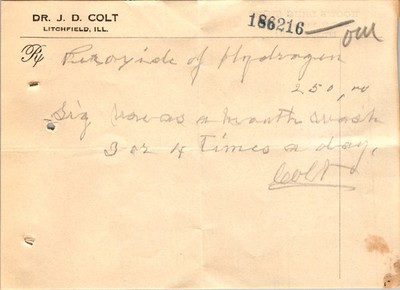 DR. J. D. COLT
LITCHFIELD, ILL.
186216
Rx Peroxide of Hydrogen
250,00
Sig Use as a mouth wash
3 or 4 times a day.
Colt